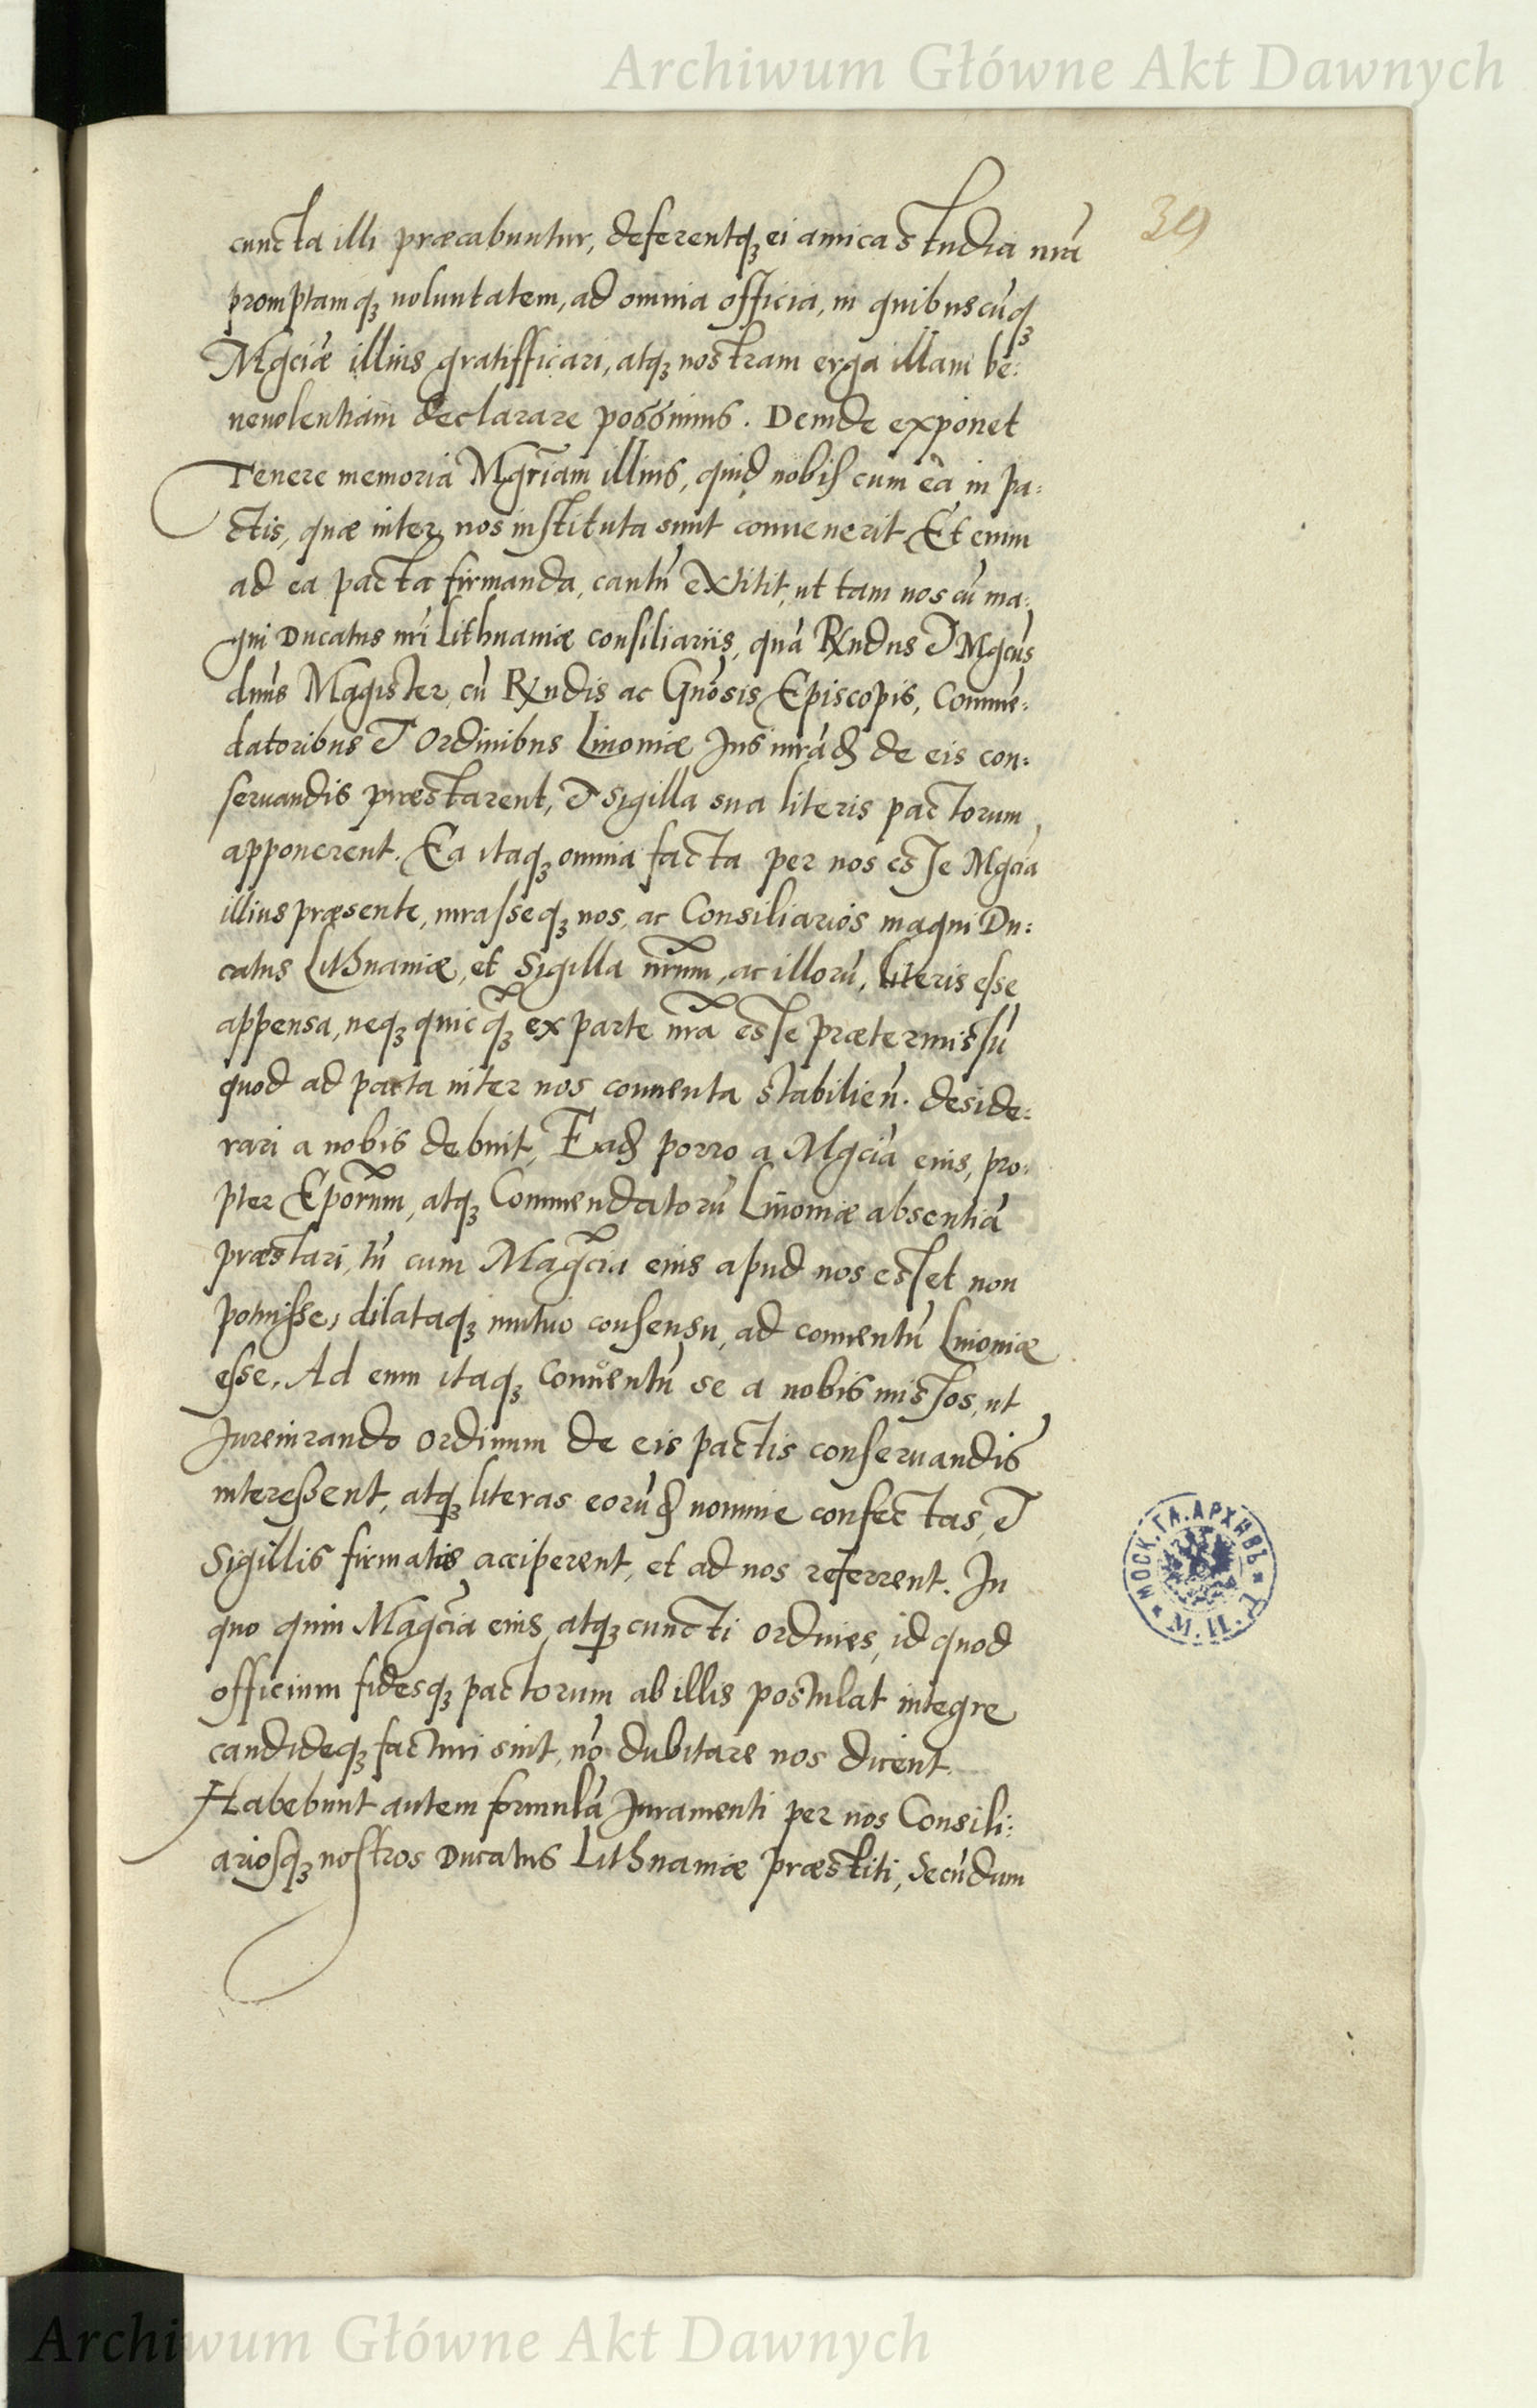 Archiwum Główne Akt Dawnych
39
cuncta illi præcabuntur, deferentq3 ei amica studia nrã
promptamq3 uoluntatem, ad omnia officia, in quibuscũq3
Mgciæ illius gratifficari, atq3 nostram erga illam be:
neuolentiam declarare possimus. Deinde exponet
Tenere memoria Mgciam illius, quid nobis cum ea in pa:
ctis, quæ inter nos instituta sunt conuenerit Etenim
ad ea pacta firmanda, cautũ extitit, ut tam nos cũ ma:
gni Ducatus nri Lithuaniæ consiliariis, quã Rndus et Mgcus
dnus Magister, cũ Rndis ac Gnosis Episcopis, Commẽ:
datoribus et Ordinibus Liuoniæ Jus iurãd de eis con:
seruandis præstarent, et sigilla sua literis pactorum
apponerent. Ea itaq3 omnia facta per nos esse Mgcia
illius præsente, iurasseq3 nos, ac Consiliarios magni Du:
catus Lithuaniæ, et Sigilla nrum, ac illorũ, literis esse
appensa, neq3 quicq3 ex parte nra esse prætermissũ
quod ad pacta inter nos conuenta stabilien. deside:
rari a nobis debuit, Ead porro a Mgcia eius, pro:
pter Eporum, atq3 Commendatorũ Liuoniæ absentiã
præstari, tũ cum Magcia eius apud nos esset non
potuisse, dilataq3 mutuo consensu, ad conuentũ Liuoniæ
esse. Ad eum itaq3 Conuentũ se a nobis missos, ut
Jureiurando Ordinum de eis pactis conseruandis
interessent, atq3 literas eorũd nomine confectas, et
Sigillis firmatas acciperent, et ad nos referrent. In
quo quin Magcia eius atq3 cuncti ordines, id quod
officium fidesq3 pactorum ab illis postulat integre
candideq3 facturi sint, nõ dubitare nos dicent.
Habebunt autem formulã Juramenti per nos Consili:
ariosq3 nostros Ducatus Lithuaniæ præstiti, Secundum
МОСК.ГЛ.АРХИВЪ
М.И.Д.
Archiwum Główne Akt Dawnych